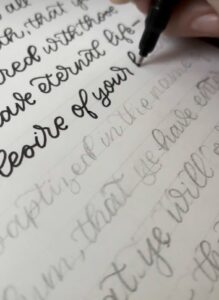 all
th, that y
red with those
ave eternal life—
desire of your h
baptized in the name
um, that ye have ent
at ye will